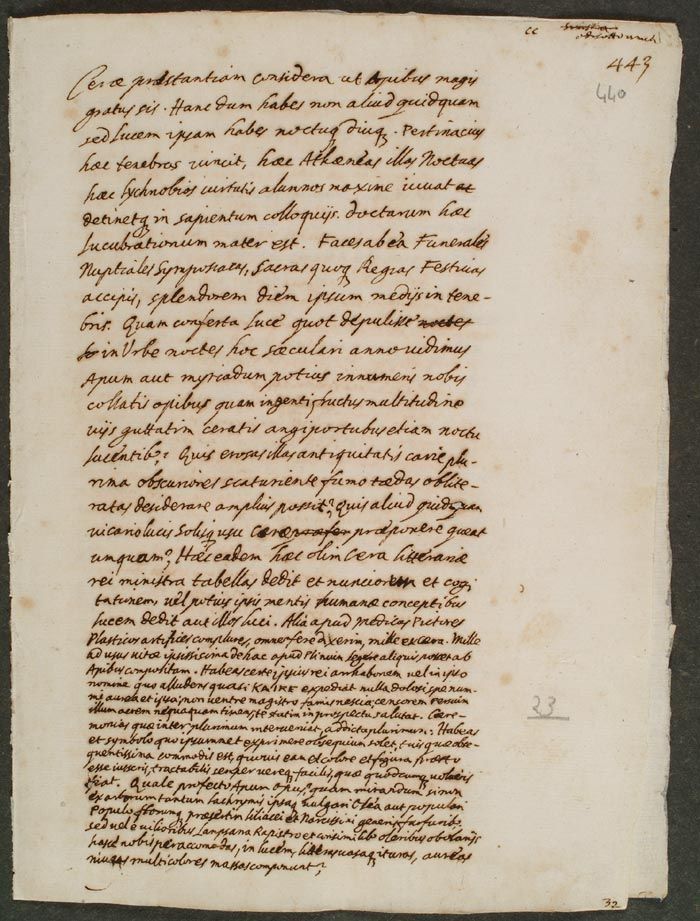 cc
443
440
Ceræ præstantiam considera ut Apibus magis
gratus sis. Hanc dum habes non aliud quidquam
sed Lucem ipsam habes noctuq diuq. Pertinacius
hæc tenebras vincit, hæc Athæneas illas Noctuas
hæc Lychnobios virtutis alumnos maxime iuuat et
detinetq in sapientum colloquijs. doctarum hæc
Lucubrationum mater est. Faces ab ea Funerales
Nuptiales Symposiacas, Sacras quoq Regias Festiuas
accipis, splendorem diem ipsum medijs in tene-
bris. Quam conferta luce quot depulisse noctes
in Urbe noctes hoc sæculari anno vidimus
Apum aut myriadum potius innumeris nobis
collatis opibus quam ingenti fluctus multitudine
vijs guttatim ceratis angiportubus etiam noctu
lucentib.? Quis erosas illas antiquitatis carie plu-
rima obscuriores scaturiente fumo tædas oblite-
ratas desiderare amplius possit? Quis aliud quidquam
vicario lucis Solisq usu Ceræ præponere queat
umquam? Hæc eadem hæc olim Cera litterariæ
rei ministra tabellas dedit et nunciorum et cogi
tationem, vel potius ipsis mentis humanæ conceptibus
lucem dedit aut illos luci. Alia apud Medicos Pictores
Plasticos artifices complures, omnes fere dixerim, mille ex cera. Mille
ad usus vitæ ipsissima de hac apud Plinium legere aliquis potest ab
Apibus compositam. Habeas certe ipsius rei arrhabonem vel in ipso
nomine quo alludens quasi KAIRE expediat nulla dolosi spe num-
mi aurea et ipsa; non ventre magistro famis nescia; censorem Persium
illum acrem nequaquam timens, te statim in prospectu salutat. Cære-
monias quæ inter plurimum interueniat, addicta plurimum. Habeas
et symbolo quo ipsummet exprimere obsequium solet, tuis quæ obse-
quentissima commodis est, quouis eam et colore et figura
esse iusseris, tractabilis semper vereq facilis, quæ quodcumq volueris
fiat. Quale profecto Apum opus, quam mirandum
ex arborum tantum lachrymis ipsaq vulgari Olea aut populari
Populo florumq præsertim liliacei et Narcissini generis
sed vel e vilioribus Lampsana Rapistro et oleribus
hasce nobis peracomodas, in lucem, aureas
niueas multicolores massas componunt?
23
32